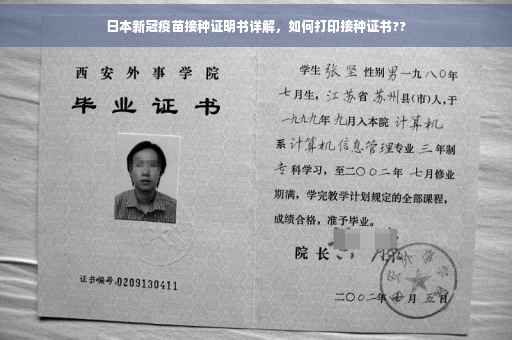 日本新冠疫苗接种证明书详解，如何打印接种证书??
西安外事学院
毕业证书
证书编号:0209130411
学生 张坚 性别男一九八〇年
七月生，江苏省苏州县(市)人,于
一九九九年九月入本院 计算机
系计算机信息管理专业 三 年制
专科学习，至二〇〇二年 七月修业
期满，学完教学计划规定的全部课程，
成绩合格，准予毕业。
院长
二〇〇二年 月五日